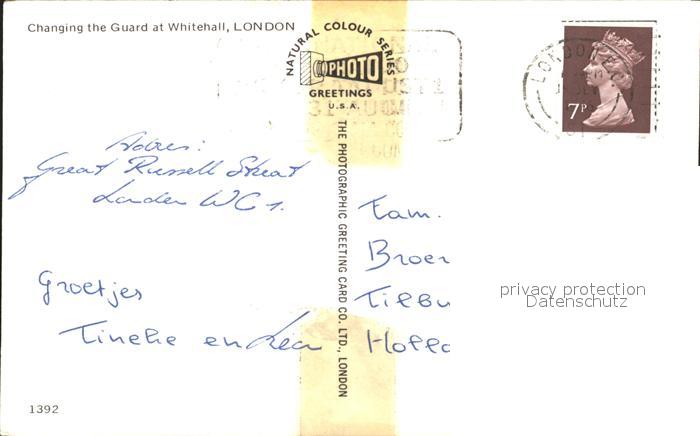 Changing the Guard at Whitehall, LONDON
NATURAL COLOUR SERIES
PHOTO
GREETINGS
U.S.A.
LONDON
7P
Adres:
Great Russell Street
London WC1.
Groetjes
Tineke en
THE PHOTOGRAPHIC GREETING CARD CO. LTD., LONDON
Fam.
Broer
Tilbu
Holla
privacy protection
Datenschutz
1392